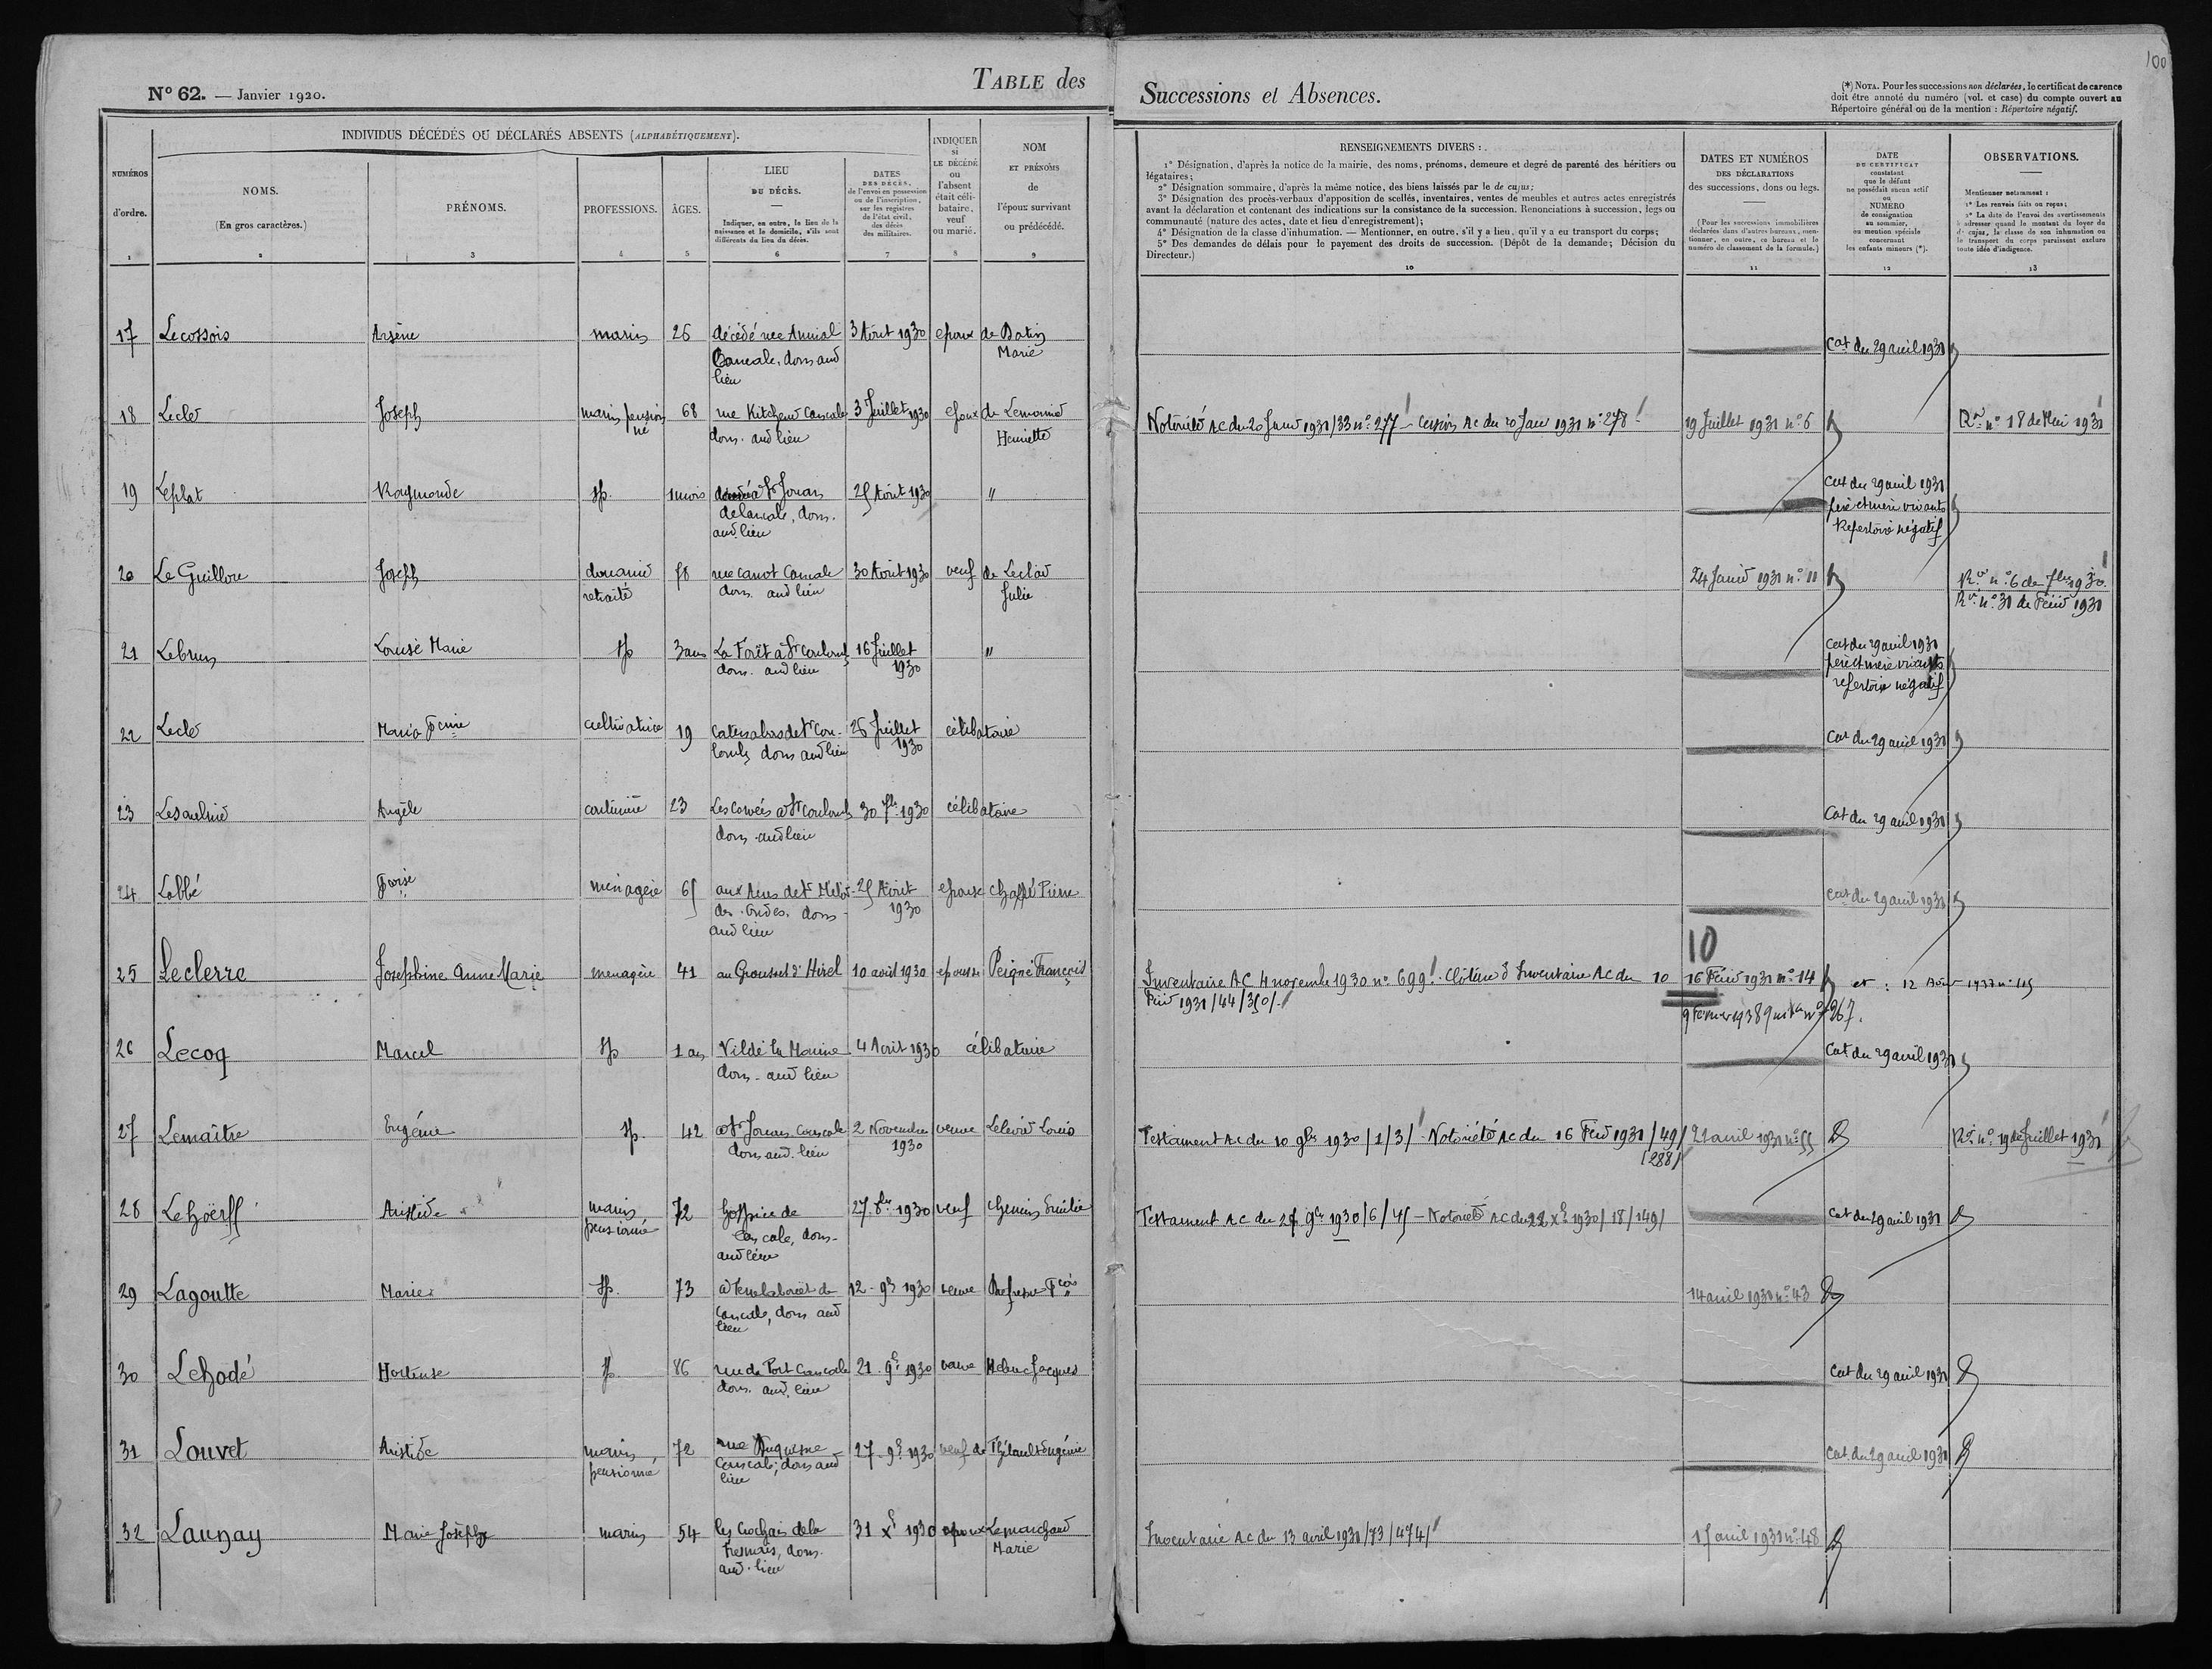 100
N° 62. — Janvier 1920.
TABLE des Successions et Absences.
(*) NOTA. Pour les successions non déclarées, le certificat de carence
doit être annoté du numéro (vol. et case) du compte ouvert au
Répertoire général ou de la mention : Répertoire négatif.
NUMÉROS
d'ordre.
1
INDIVIDUS DÉCÉDÉS OU DÉCLARÉS ABSENTS (ALPHABÉTIQUEMENT).
NOMS.
(En gros caractères.)
2
PRÉNOMS.
3
PROFESSIONS.
4
ÂGES.
5
LIEU
DU DÉCÈS.
—
Indiquer, en outre, le lieu de la
naissance et le domicile, s'ils sont
différents du lieu du décès.
6
DATES
DES DÉCÈS,
de l'envoi en possession
ou de l'inscription,
sur les registres
de l'état civil,
des décès
des militaires.
7
INDIQUER
si
LE DÉCÉDÉ
ou
l'absent
était céli-
bataire,
veuf
ou marié.
8
NOM
ET PRÉNOMS
de
l'époux survivant
ou prédécédé.
9
RENSEIGNEMENTS DIVERS :
1° Désignation, d'après la notice de la mairie, des noms, prénoms, demeure et degré de parenté des héritiers ou
légataires;
2° Désignation sommaire, d'après la même notice, des biens laissés par le de cujus;
3° Désignation des procès-verbaux d'apposition de scellés, inventaires, ventes de meubles et autres actes enregistrés
avant la déclaration et contenant des indications sur la consistance de la succession. Renonciations à succession, legs ou
communauté (nature des actes, date et lieu d'enregistrement);
4° Désignation de la classe d'inhumation. — Mentionner, en outre, s'il y a lieu, qu'il y a eu transport du corps;
5° Des demandes de délais pour le payement des droits de succession. (Dépôt de la demande; Décision du
Directeur.)
10
DATES ET NUMÉROS
DES DÉCLARATIONS
des successions, dons ou legs.
—
(Pour les successions immobilières
déclarées dans d'autres bureaux, men-
tionner, en outre, ce bureau et le
numéro de classement de la formule.)
11
DATE
DU CERTIFICAT
constatant
que le défunt
ne possédait aucun actif
OU
NUMÉRO
de consignation
au sommier,
ou mention spéciale
concernant
les enfants mineurs (*).
12
OBSERVATIONS.
—
Mentionner notamment :
1° Les renvois faits ou reçus;
2° La date de l'envoi des avertissements
à adresser quand le montant du loyer du
de cujus, la classe de son inhumation ou
le transport du corps paraissent exclure
toute idée d'indigence.
13
17 Lecossois Arsène marin 26 décédé rue 3 Août 1930 epoux de Marie
Cancale, dom aud
lieu
Cat du 29 avril 1931
18 Leclo Joseph marin pension né 68 rue Kitchener Cancale 3 Juillet 1930 epoux de Lemonnier Henriette
dom. aud lieu
Notoriété AC du 20 Janv 1931/33 n° 277 - Cession Ac du 20 Janv 1931 n° 278
19 Juillet 1931 n° 6
Rvi n° 18 de Mai 1931
19 Leplat Raymonde sp. 1 mois St Jouan 25 Août 1930 "
de Cancale, dom.
aud lieu
Cat du 29 avril 1931
père et mère vivants
Répertoire négatif
20 Le Guillou Joseph douanier retraité 58 rue Carnot Cancale 30 Août 1930 veuf de Julie
dom. aud lieu
24 Janvier 1931 n° 11
Rvi n° 6 de 7bre 1930
Rvi n° 31 de Févr 1931
21 Lebrun Louise Marie sp 3 ans La Forêt à St Coulomb 16 Juillet 1930 "
dom. aud lieu
Cat du 29 avril 1931
père et mère vivants
répertoire négatif
22 Leclo Maria Fcine cultivatrice 19 St Cou- 26 Juillet 1930 célibataire
lomb dom aud lieu
Cat du 29 avril 1931
23 Lesaulnier Angèle couturière 23 Les Corvées à St Coulomb 30 7br 1930 célibataire
dom. aud lieu
Cat du 29 avril 1931
24 Labbé Fçoise ménagère 65 aux de St Méloir 25 Août 1930 epouse Pierre
des Ondes, dom
aud lieu
Cat du 29 avril 1931
25 Leclerre Joséphine Anne Marie ménagère 41 au Grousset d'Hirel 10 août 1930 epouse Peigné François
Inventaire AC 4 novembre 1930 n° 699. Clôture d'Inventaire AC du 10
Févr 1931/44/350/
10
16 Févr 1931 n° 14 et : 12 Août 1937 n° 115
9 Février 1938 n° 267.
26 Lecoq Marcel sp 1 an Vildé la Marine 4 Août 1930 célibataire
dom. aud lieu
Cat du 29 avril 1931
27 Lemaître Eugénie sp. 42 à St Jouan Cancale 2 Novembre 1930 veuve Lelevier Louis
dom aud. lieu
Testament Ac du 10 9bre 1930/1/3/ Notoriété Ac du 16 Févr 1931/49/
/288/
21 avril 1931 n° 55
Rvi n° 19 de Juillet 1931
28 Lehoërff Aristide marin pensionné 72 hospice de 27 8bre 1930 veuf Chemin Emilie
Cancale, dom.
aud lieu
Testament AC du 27 9bre 1930/6/45 - Notoriété AC du 22 Xbre 1930/18/149/
Cat du 29 avril 1931
29 Lagoutte Marie sp. 73 à Terrelabouët de 12 9bre 1930 veuve Dufresne Fçois
Cancale, dom aud
lieu
14 avril 1931 n° 43
30 Lehodé Hortense sp. 86 rue du Port Cancale 21 9bre 1930 veuve Jacques
dom. aud. lieu
Cat du 29 avril 1931
31 Louvet Aristide marin pensionné 72 rue Duquesne 27 9bre 1930 veuf de Thébault Eugénie
Cancale, dom aud
lieu
Cat du 29 avril 1931
32 Launay Marie Joseph marin 54 les Crochais de la 31 Xbre 1930 epoux Lemarchand Marie
Fresnais, dom.
aud. lieu
Inventaire Ac du 13 avril 1931/73/474/
15 avril 1931 n° 48